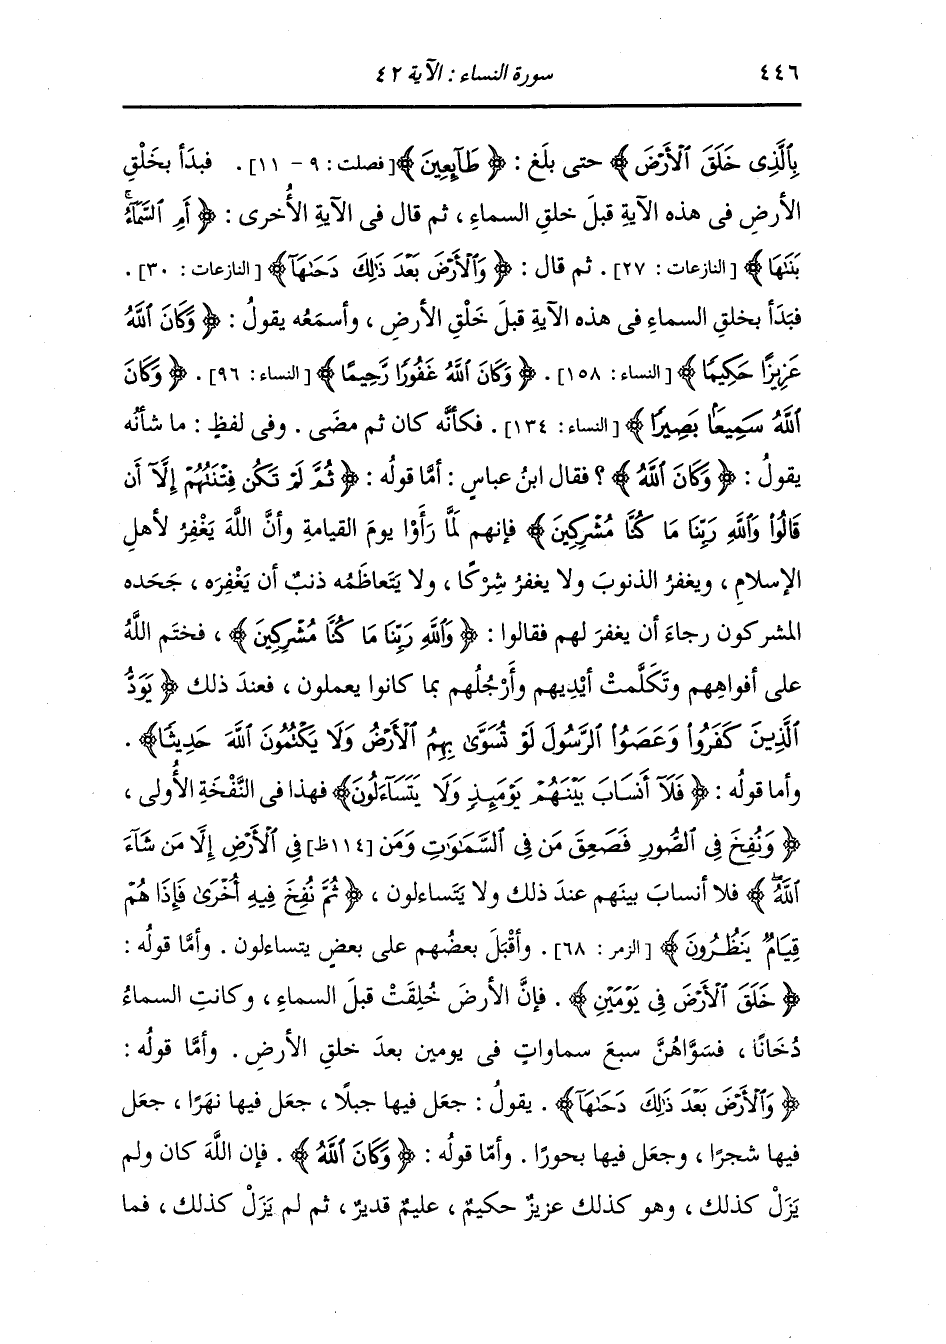 ٤٤٦
سورة النساء : الآية ٤٢
بِٱلَّذِى خَلَقَ ٱلْأَرْضَ ﴾ حتى بلَغ : ﴿ طَآئِعِينَ ﴾ [فصلت : ٩ - ١١] . فبدَأ بخَلْقِ
الأرضِ فى هذه الآيةِ قبلَ خلقِ السماءِ ، ثم قال فى الآيةِ الأُخرى : ﴿ أَمِ ٱلسَّمَآءُ
بَنَىٰهَا ﴾ [النازعات : ٢٧] . ثم قال : ﴿ وَٱلْأَرْضَ بَعْدَ ذَٰلِكَ دَحَىٰهَآ ﴾ [النازعات : ٣٠] .
فبَدَأ بخلقِ السماءِ فى هذه الآيةِ قبلَ خَلْقِ الأرضِ ، وأسمَعُه يقولُ : ﴿ وَكَانَ ٱللَّهُ
عَزِيزًا حَكِيمًا ﴾ [النساء : ١٥٨] . ﴿ وَكَانَ ٱللَّهُ غَفُورًا رَّحِيمًا ﴾ [النساء : ٩٦] . ﴿ وَكَانَ
ٱللَّهُ سَمِيعًا بَصِيرًا ﴾ [النساء : ١٣٤] . فكأنَّه كان ثم مضَى . وفى لفظٍ : ما شأنُه
يقولُ : ﴿ وَكَانَ ٱللَّهُ ﴾ ؟ فقال ابنُ عباسٍ : أمَّا قولُه : ﴿ ثُمَّ لَمْ تَكُن فِتْنَتُهُمْ إِلَّآ أَن
قَالُوا۟ وَٱللَّهِ رَبِّنَا مَا كُنَّا مُشْرِكِينَ ﴾ فإنهم لَمَّا رَأَوْا يومَ القيامةِ وأنَّ اللَّهَ يَغْفِرُ لأهلِ
الإسلامِ ، ويغفرُ الذنوبَ ولا يغفرُ شِرْكًا ، ولا يَتَعاظَمُه ذنبٌ أن يَغْفِرَه ، جَحَده
المشركون رجاءَ أن يغفرَ لهم فقالوا : ﴿ وَٱللَّهِ رَبِّنَا مَا كُنَّا مُشْرِكِينَ ﴾ ، فختَم اللَّهُ
على أفواهِهم وتَكَلَّمتْ أيْدِيهم وأَرْجُلُهم بما كانوا يعملون ، فعندَ ذلك ﴿ يَوَدُّ
ٱلَّذِينَ كَفَرُوا۟ وَعَصَوُا۟ ٱلرَّسُولَ لَوْ تُسَوَّىٰ بِهِمُ ٱلْأَرْضُ وَلَا يَكْتُمُونَ ٱللَّهَ حَدِيثًا ﴾ .
وأما قولُه : ﴿ فَلَآ أَنسَابَ بَيْنَهُمْ يَوْمَئِذٍ وَلَا يَتَسَآءَلُونَ ﴾ فهذا فى النَّفْخَةِ الأُولى ،
﴿ وَنُفِخَ فِى ٱلصُّورِ فَصَعِقَ مَن فِى ٱلسَّمَٰوَٰتِ وَمَن [١١٤ظ] فِى ٱلْأَرْضِ إِلَّا مَن شَآءَ
ٱللَّهُ ﴾ فلا أنسابَ بينَهم عندَ ذلك ولا يَتَساءلون ، ﴿ ثُمَّ نُفِخَ فِيهِ أُخْرَىٰ فَإِذَا هُمْ
قِيَامٌ يَنظُرُونَ ﴾ [الزمر : ٦٨] . وأقْبَلَ بعضُهم على بعضٍ يتساءلون . وأمَّا قولُه :
﴿ خَلَقَ ٱلْأَرْضَ فِى يَوْمَيْنِ ﴾ . فإنَّ الأرضَ خُلِقَتْ قبلَ السماءِ ، وكانتِ السماءُ
دُخَانًا ، فسَوَّاهُنَّ سبعَ سماواتٍ فى يومين بعدَ خلقِ الأرضِ . وأمَّا قولُه :
﴿ وَٱلْأَرْضَ بَعْدَ ذَٰلِكَ دَحَىٰهَآ ﴾ . يقولُ : جعَل فيها جبلًا ، جعَل فيها نهَرًا ، جعَل
فيها شجرًا ، وجعَل فيها بحورًا . وأمّا قولُه : ﴿ وَكَانَ ٱللَّهُ ﴾ . فإن اللَّهَ كان ولم
يَزَلْ كذلك ، وهو كذلك عزيزٌ حكيمٌ ، عليمٌ قديرٌ ، ثم لم يَزَلْ كذلك ، فما